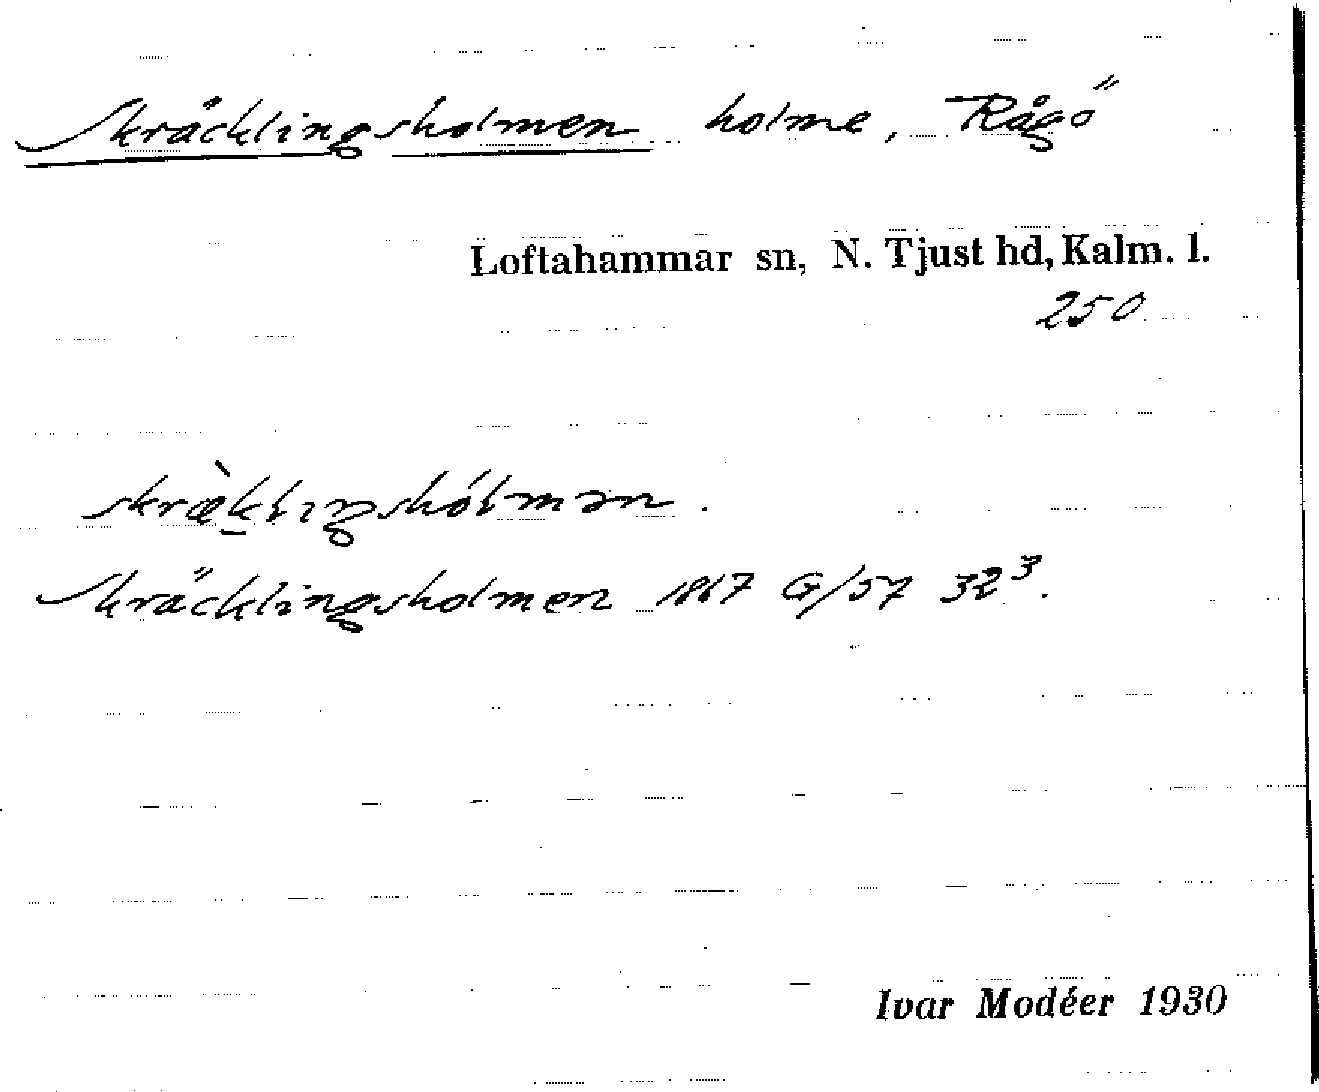 Skräcklingsholmen holme, Rågö
Loftahammar sn, N. Tjust hd, Kalm. l.
250
skræ̀klıŋshólmən.
Skräcklingsholmen 1867 G/57 32³.
Ivar Modéer 1930